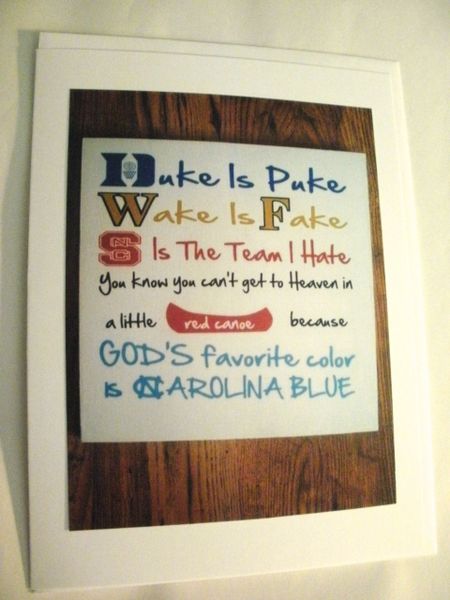 Duke Is Puke
Wake Is Fake
S Is The Team I Hate
You know you can't get to Heaven in
a little red canoe because
GOD'S favorite color
is CAROLINA BLUE